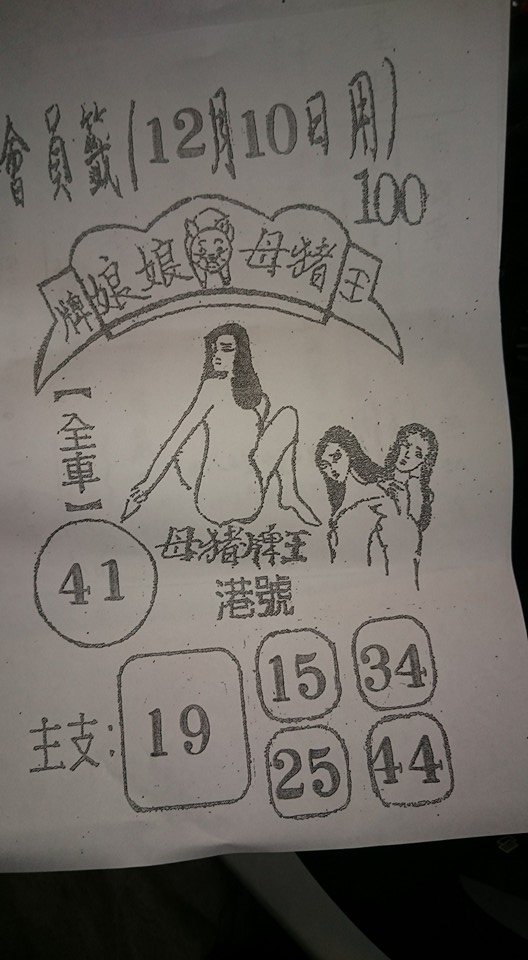 會員籤(12月10日用)
100
牌娘娘母猪王
【全車】
41
母猪牌王
港號
主支:19
15 34
25 44